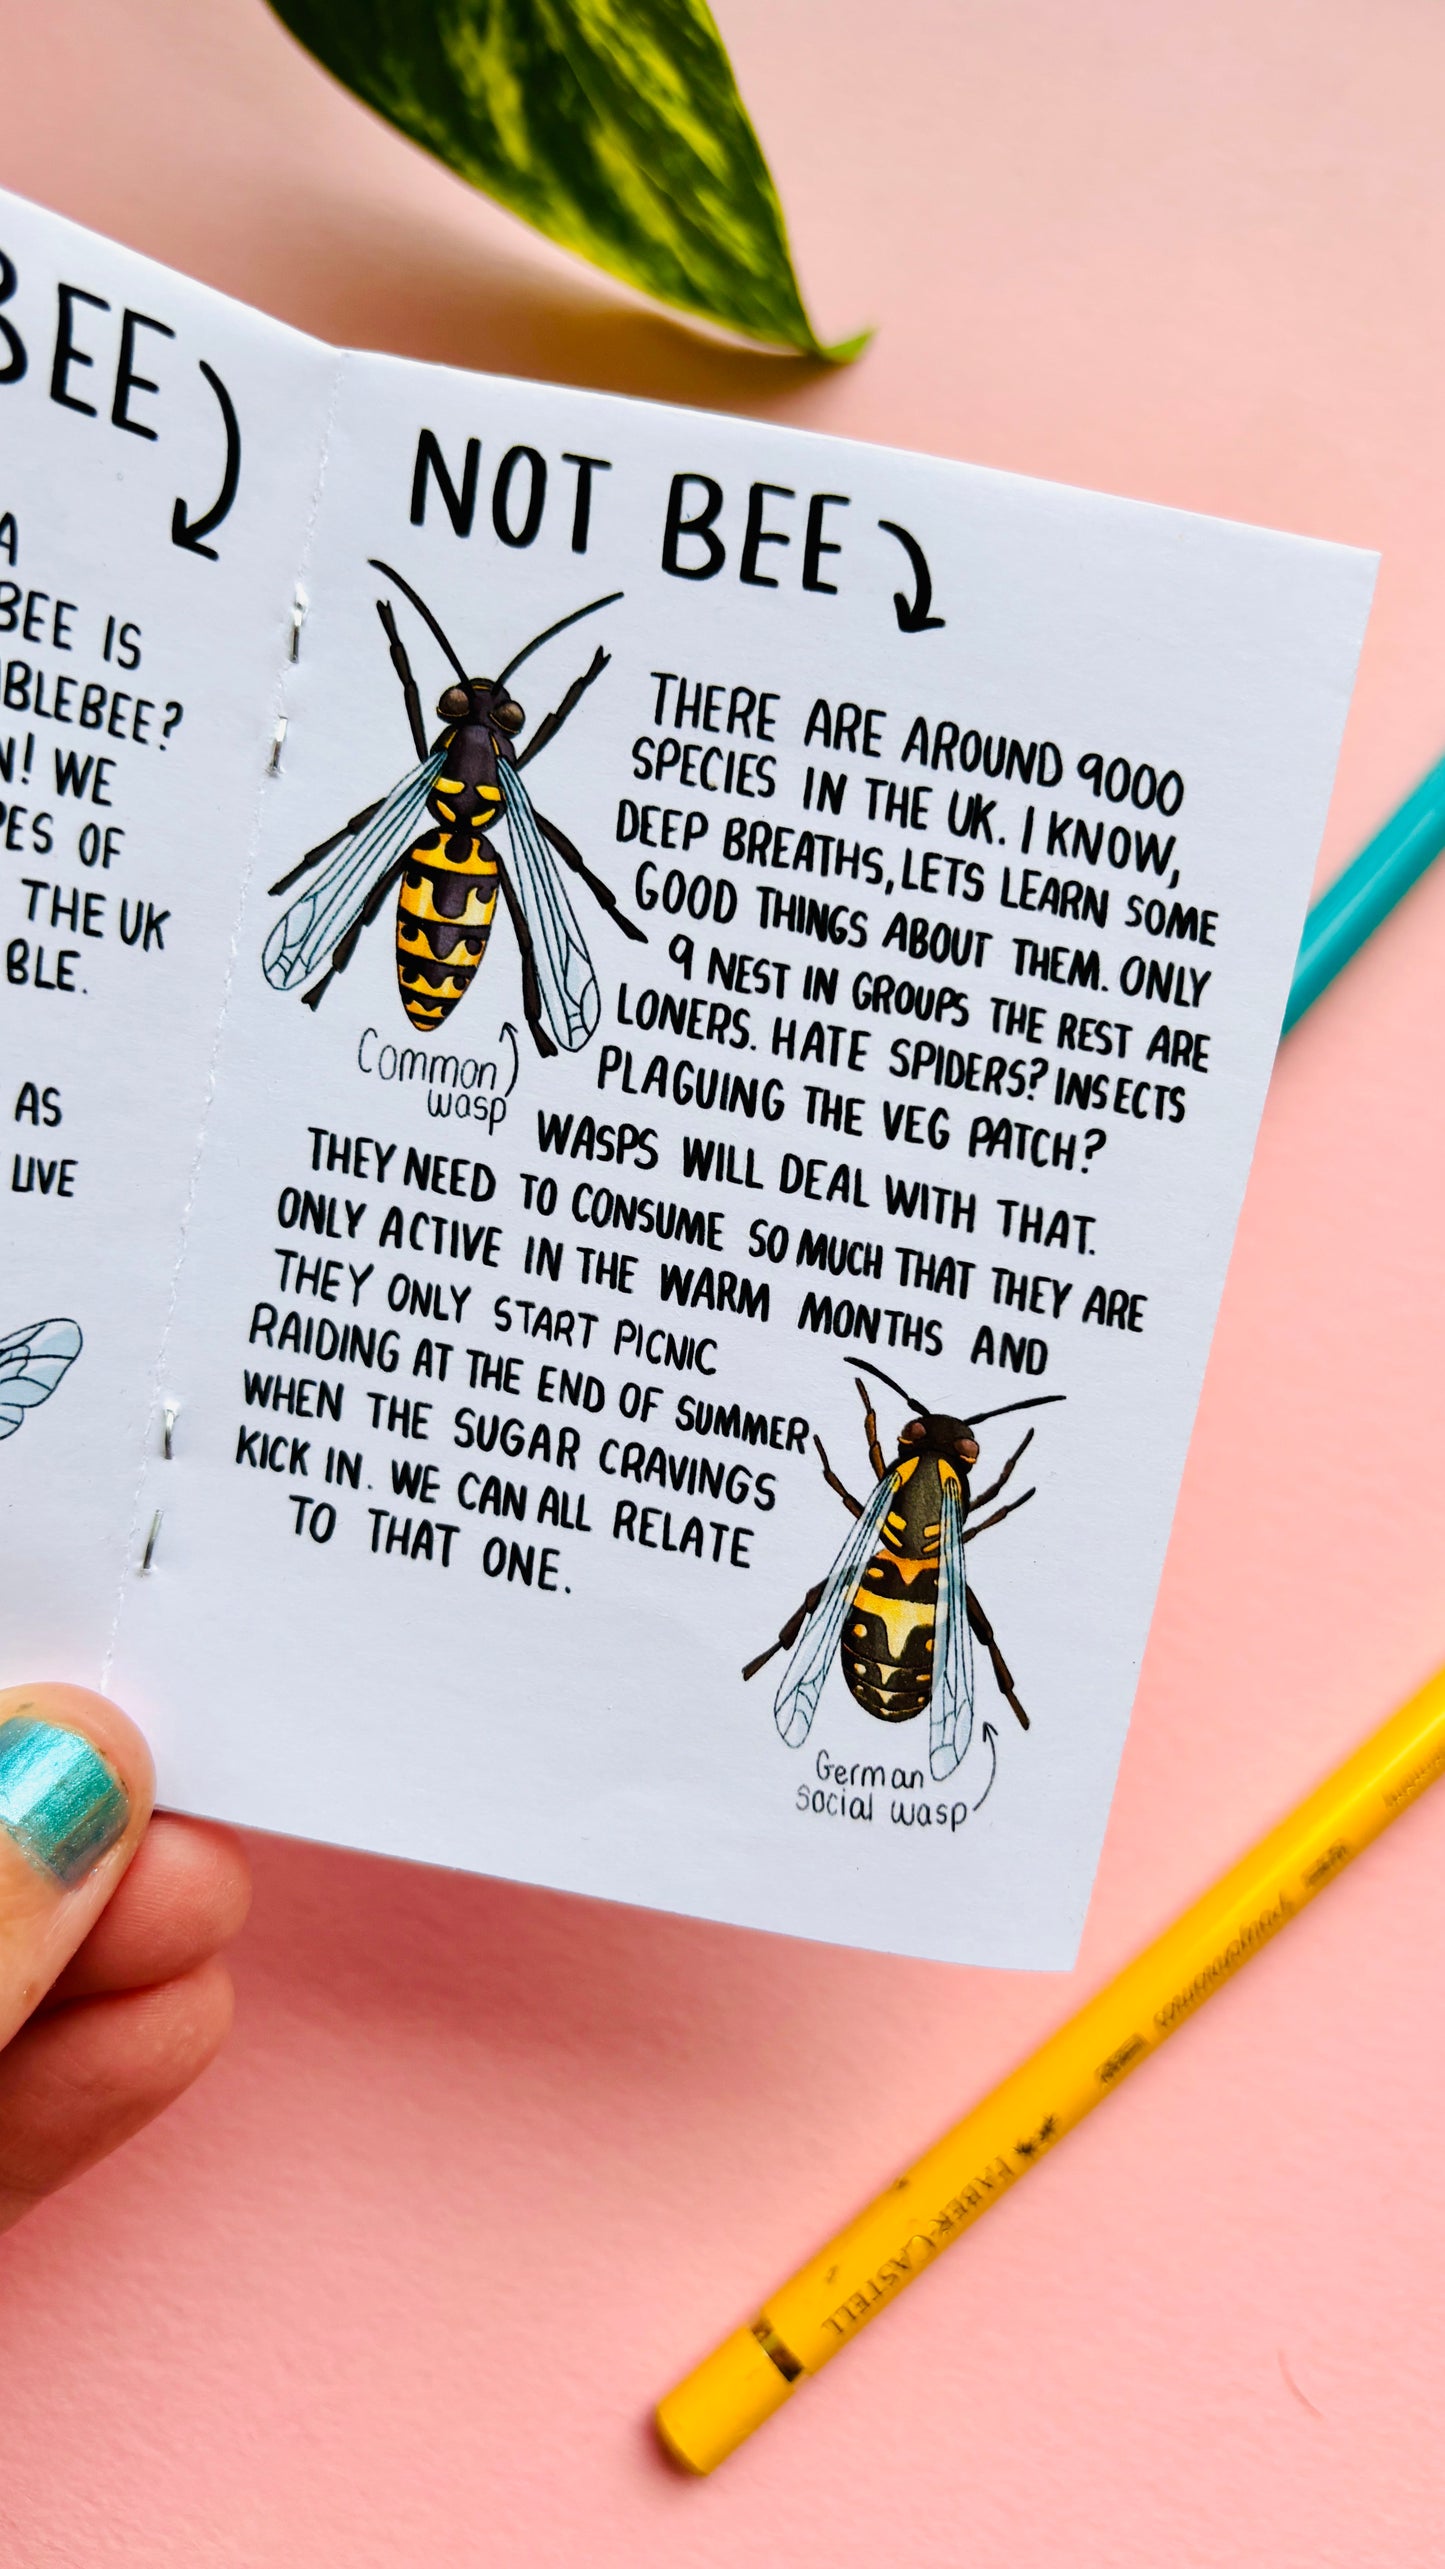 BEE
A
BEE IS
BLEBEE?
N! WE
PES OF
THE UK
BLE.
AS
LIVE
NOT BEE
THERE ARE AROUND 9000
SPECIES IN THE UK. I KNOW,
DEEP BREATHS, LETS LEARN SOME
GOOD THINGS ABOUT THEM. ONLY
9 NEST IN GROUPS THE REST ARE
LONERS. HATE SPIDERS? INSECTS
PLAGUING THE VEG PATCH?
WASPS WILL DEAL WITH THAT.
THEY NEED TO CONSUME SO MUCH THAT THEY ARE
ONLY ACTIVE IN THE WARM MONTHS AND
THEY ONLY START PICNIC
RAIDING AT THE END OF SUMMER
WHEN THE SUGAR CRAVINGS
KICK IN. WE CAN ALL RELATE
TO THAT ONE.
Common
wasp
German
social wasp
FABER-CASTELL